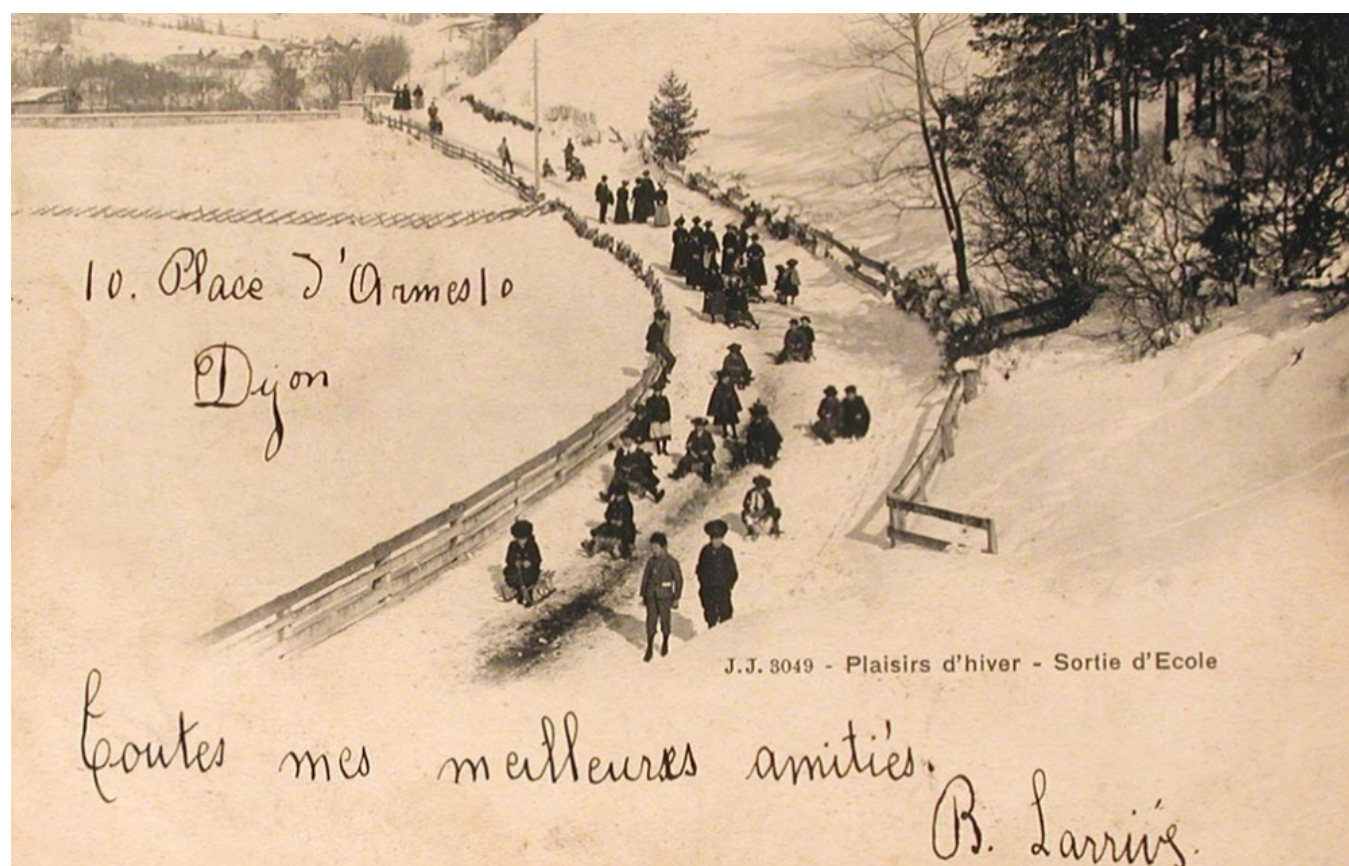 10. Place d'Armes 10
Dijon
J.J. 3049 - Plaisirs d'hiver - Sortie d'Ecole
Toutes mes meilleures amitiés.
B. Larrivé.